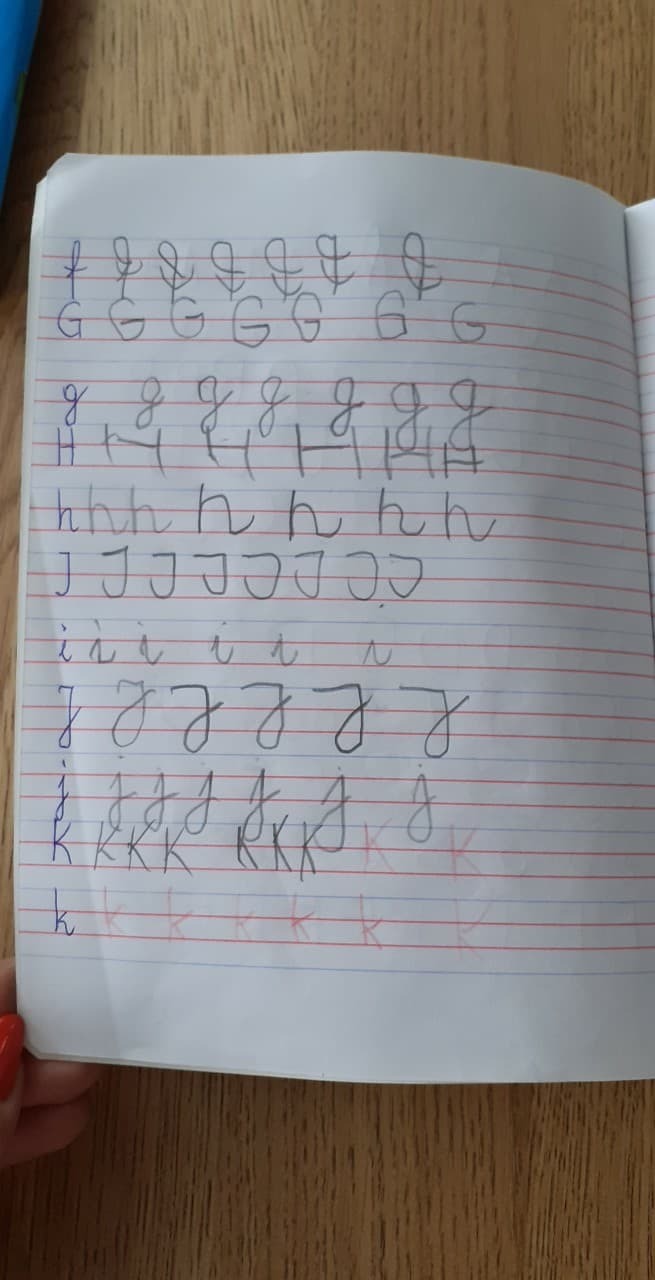 f f f f f f f
G G G G G G G
g g g g g g g
H H H H H H
h h h h h h h
J J J J J J J J
i i i i i i
J J J J J J
j j j j j j j
K K K K K K K K K
k k k k k k k